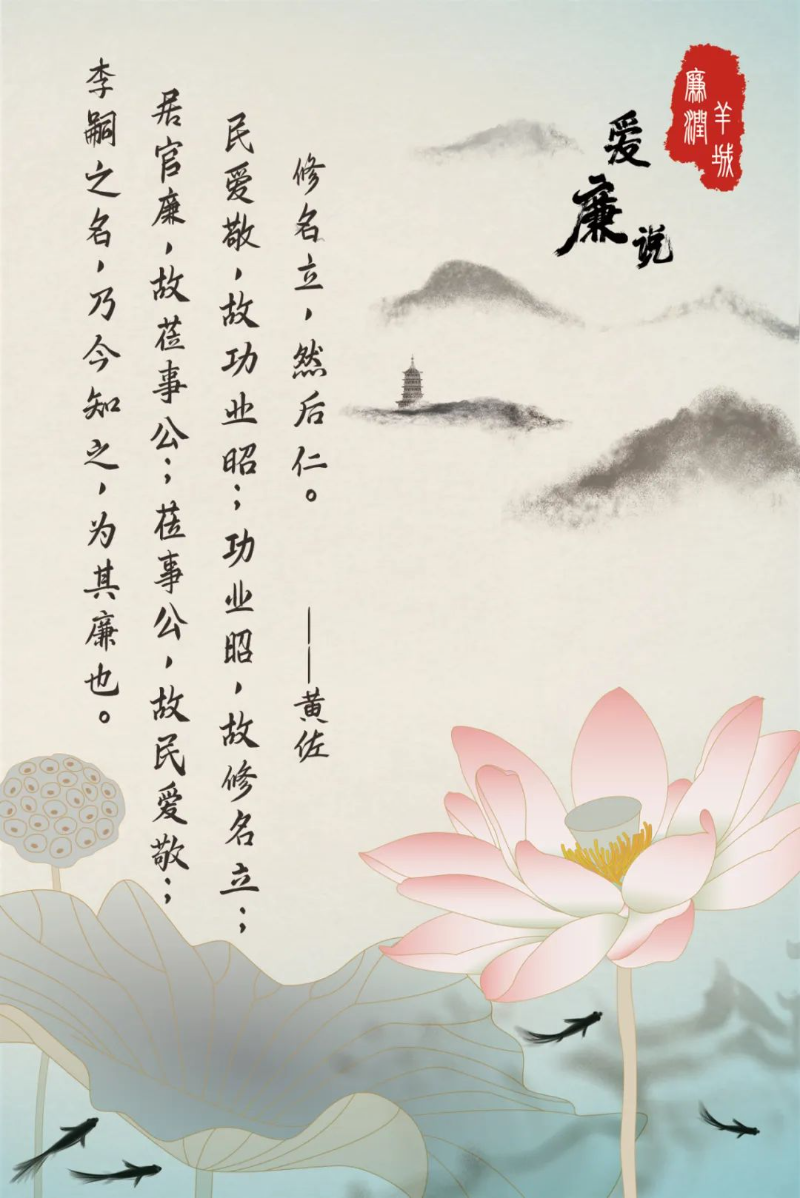 廉潤
羊城
爱廉说
李嗣之名，乃今知之，为其廉也。
居官廉，故莅事公；莅事公，故民爱敬；
民爱敬，故功业昭；功业昭，故修名立；
修名立，然后仁。
——黄佐